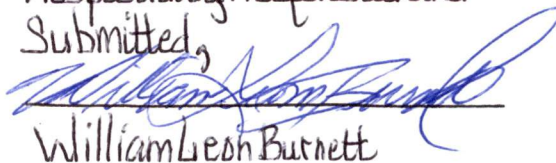 Submitted,
William Leon Burnett
William Leon Burnett